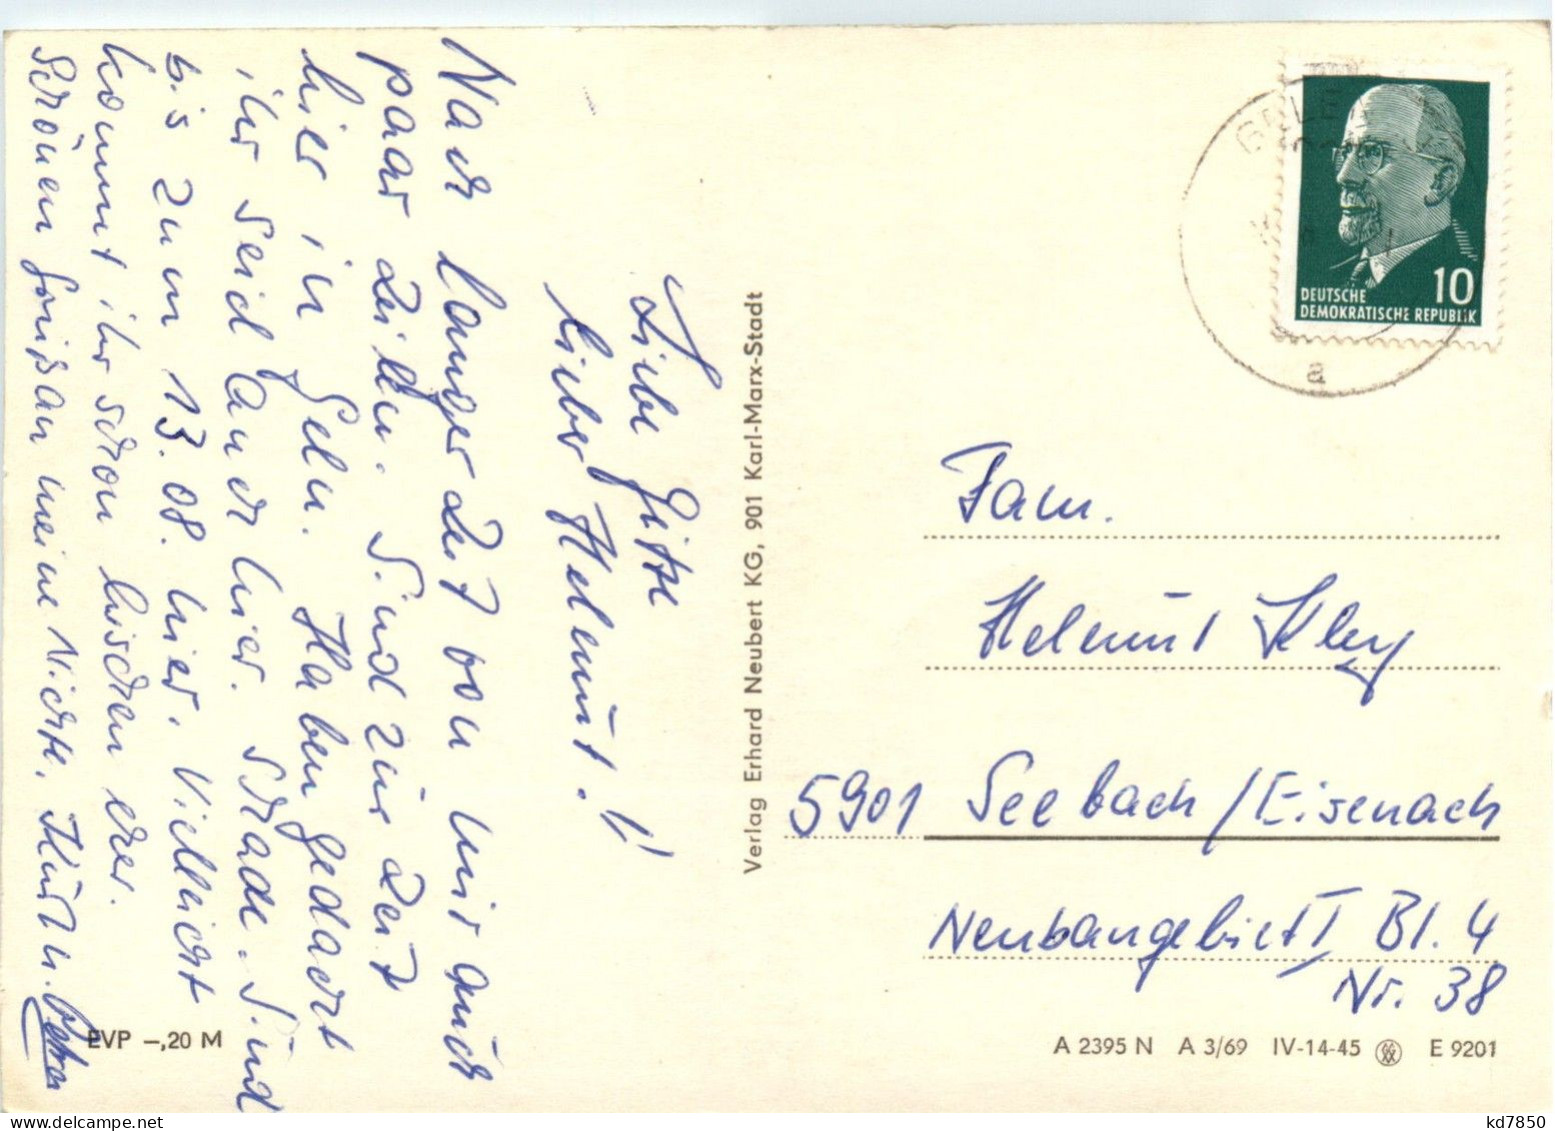 Liebe Gitte
lieber Helmut!!
Nach langer Zeit von mir auch
paar Zeilen. Sind zur Zeit
hier in Gehr. Haben gedacht
ihr seid auch hier. Schade. Sind
bis zum 13.08. hier. Vielleicht
kommt ihr schon bischen eher.
Schönen Gruß an meine Nichte. Kurt u.
EVP –,20 M
Verlag Erhard Neubert KG, 901 Karl-Marx-Stadt
10
DEUTSCHE
DEMOKRATISCHE REPUBLIK
a
Fam.
Helmut Kley
5901 Seebach/Eisenach
Neubaugebiet I Bl. 4
Nr. 38
A 2395 N A 3/69 IV-14-45 E 9201
kd7850